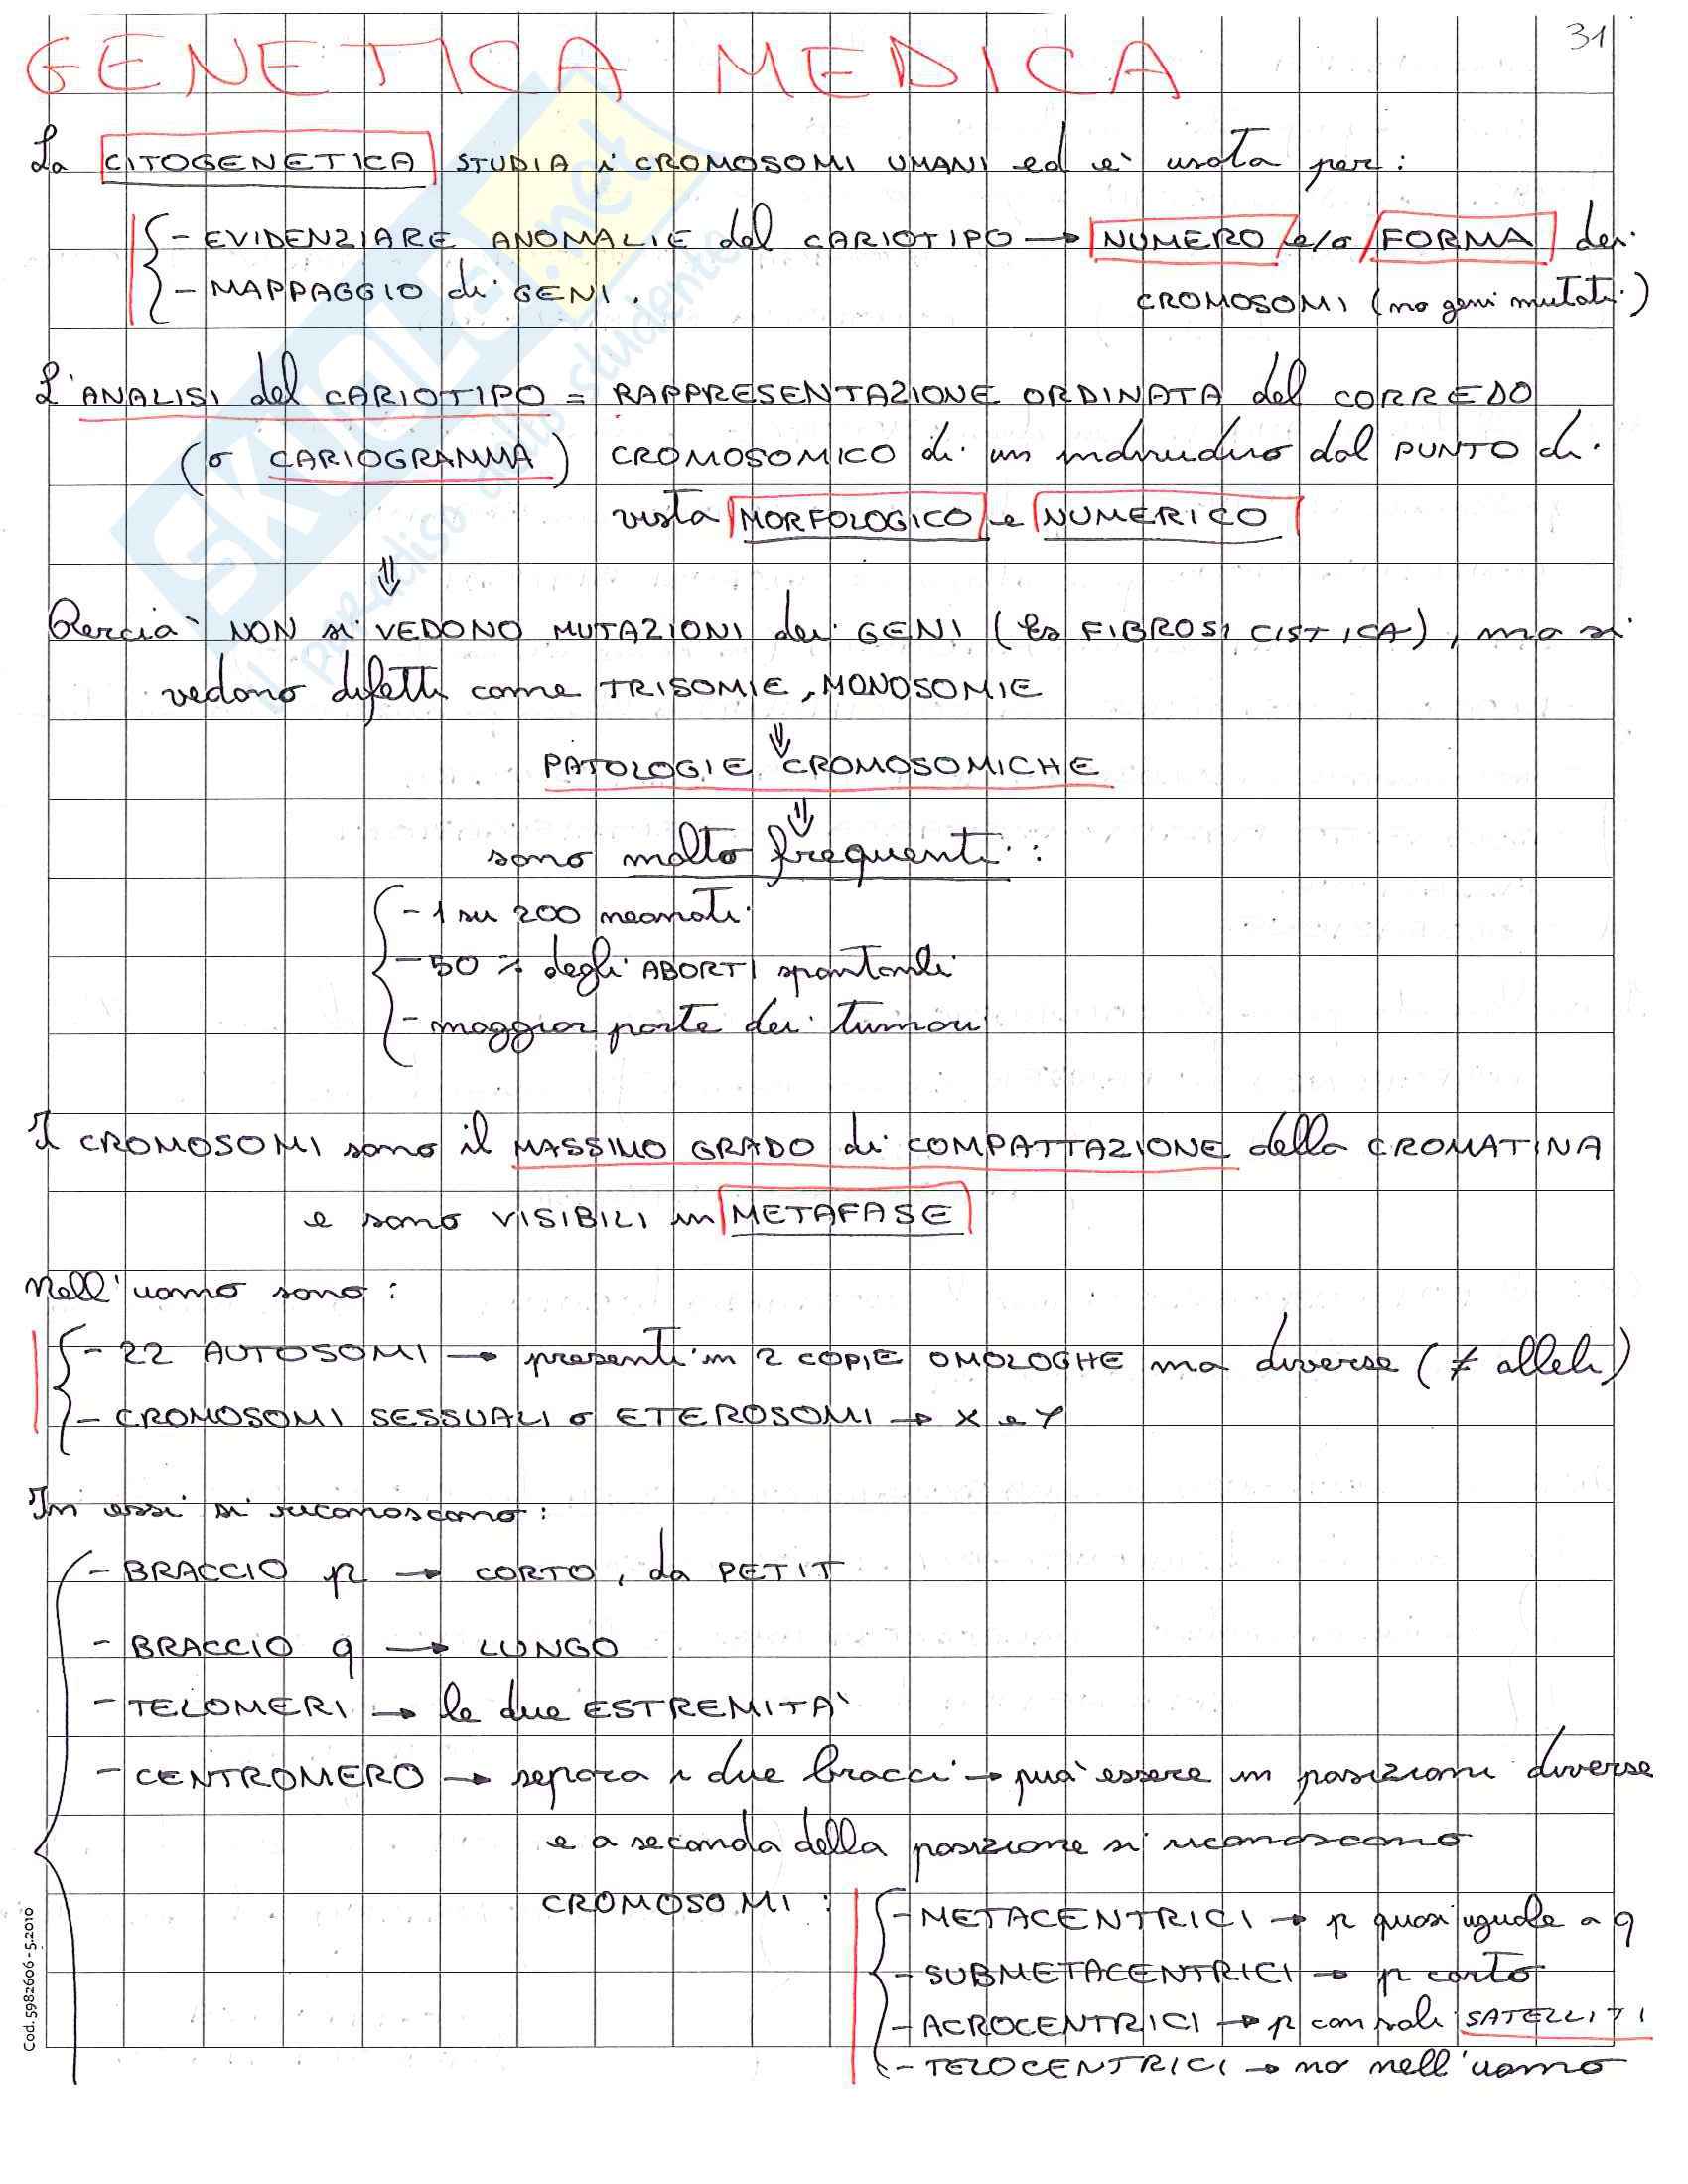 31
GENETICA MEDICA
La CITOGENETICA STUDIA i CROMOSOMI UMANI ed è usata per:
- EVIDENZIARE ANOMALIE del CARIOTIPO → NUMERO e/o FORMA dei
- MAPPAGGIO di GENI. CROMOSOMI (no geni mutati)
L'ANALISI del CARIOTIPO = RAPPRESENTAZIONE ORDINATA del CORREDO
(o CARIOGRAMMA) CROMOSOMICO di un individuo dal PUNTO di
vista MORFOLOGICO e NUMERICO
⇓
Perciò NON si VEDONO MUTAZIONI dei GENI (Es FIBROSI CISTICA), ma si
vedono difetti come TRISOMIE, MONOSOMIE
⇓
PATOLOGIE CROMOSOMICHE
⇓
sono molto frequenti:
- 1 su 200 neonati
- 50 % degli ABORTI spontanei
- maggior parte dei tumori
I CROMOSOMI sono il MASSIMO GRADO di COMPATTAZIONE della CROMATINA
e sono VISIBILI in METAFASE
Nell'uomo sono:
- 22 AUTOSOMI → presenti in 2 COPIE OMOLOGHE ma diverse (≠ alleli)
- CROMOSOMI SESSUALI o ETEROSOMI → X e Y
In essi si riconoscono:
- BRACCIO p → CORTO, da PETIT
- BRACCIO q → LUNGO
- TELOMERI → le due ESTREMITA'
- CENTROMERO → separa i due bracci → può essere in posizioni diverse
e a seconda della posizione si riconoscono
CROMOSOMI:
- METACENTRICI → p quasi uguale a q
- SUBMETACENTRICI → p corto
- ACROCENTRICI → p con soli SATELLITI
- TELOCENTRICI → no nell'uomo
Cod. 5982606 - 5.2010
SKUOLA.net
il paradiso dello studente